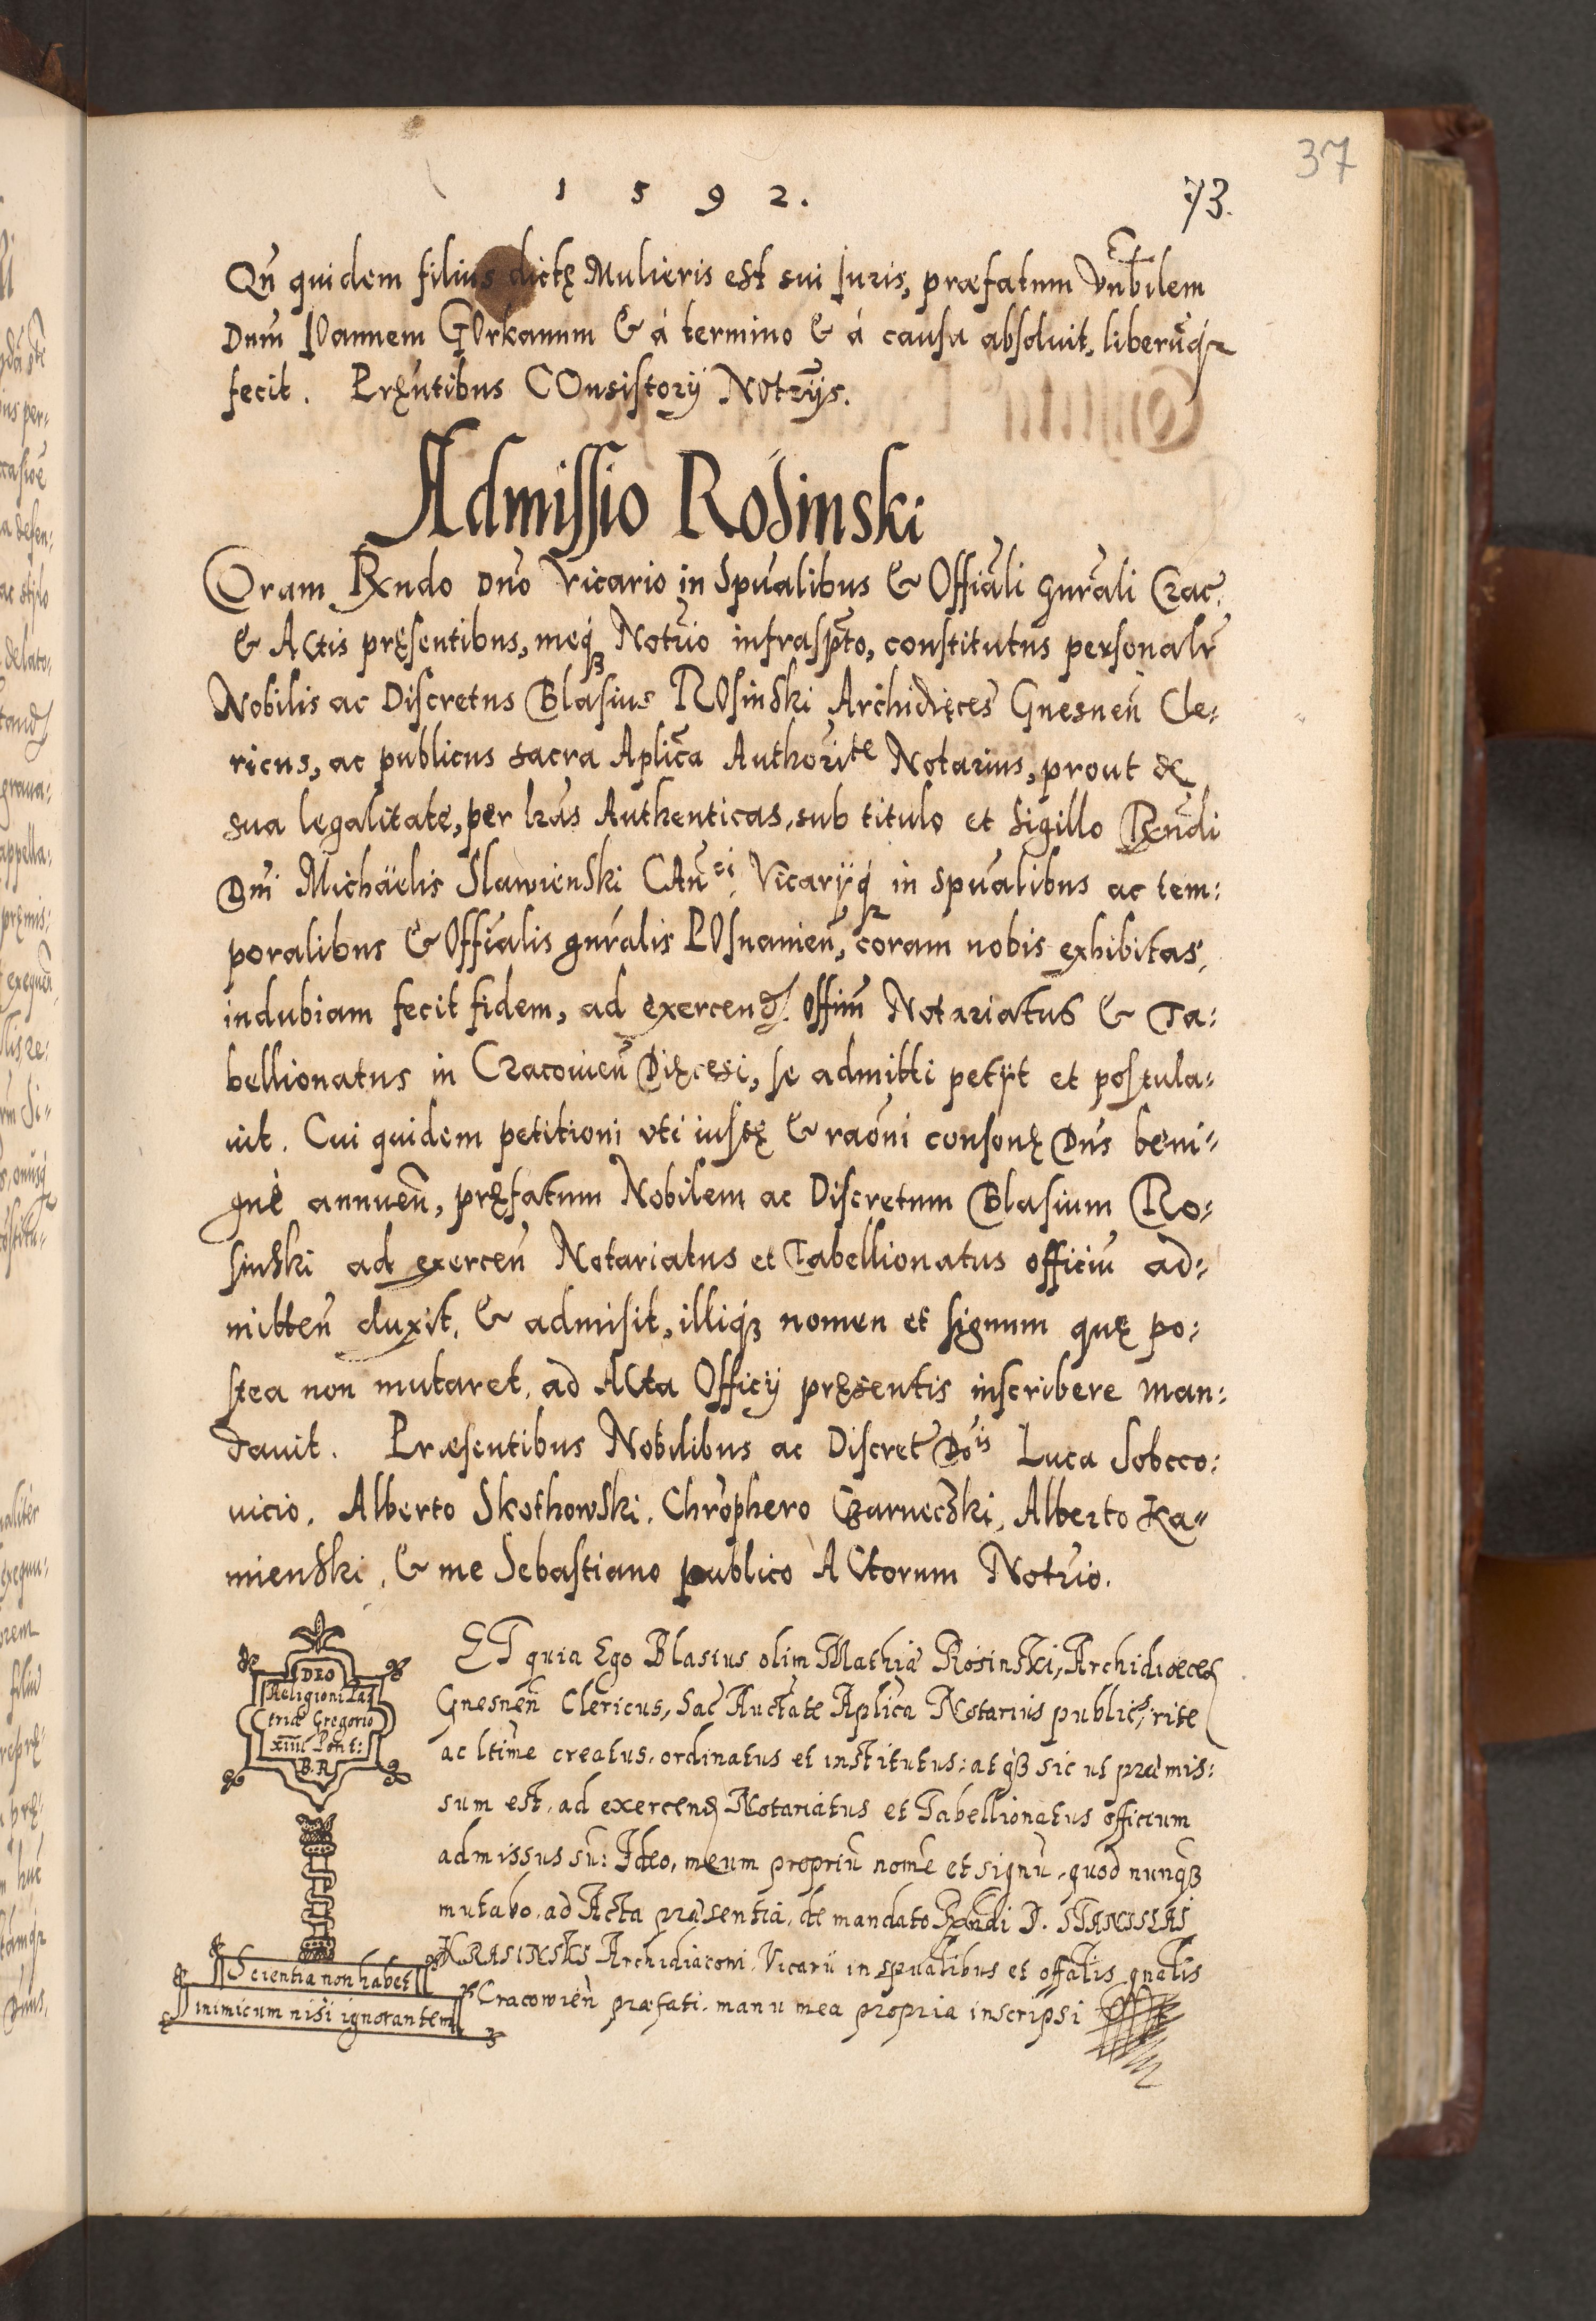 37
1 5 9 2.
73.
Qñ quidem filius dictę Mulieris est sui Iuris, præfatum Vnb̃ilem
Dnm̃ IOannem GOrkanum & á termino & á causa absoluit, liberũq́
fecit. Pręñtibus COnsistorÿ NOtr̃ijs.
Admissio Rosinski
COram Rx̃ndo Dñо Vicario in Spũalibus & Offiãli gnr̃ali Crac̃.
& ACtis pręsentibus, meq́ꝫ Notr̃io infrasp̃to, constitutus personalr̃
Nobilis ac Discretus Blasius ROsinski Archidięces̃ Gnesneñ Cle:
ricus, ac publicus sacra Aplic̃a Authorite Notarius, prout de
sua legalitate, per lr̃as Authenticas, sub titulo et Sigillo Rx̃ndi
Dñi Michäelis Slawienski CAñci, Vicarÿq́ in spũalibus ac tem:
poralibus & Offiãlis gnr̃alis POsnanieñ, coram nobis exhibitas,
indubiam fecit fidem, ad exercenđ. Offim̃ Notariatus & Ta:
bellionatus in Cracouieñ Dięcesi, se admitti petÿt et postula:
uit. Cui quidem petitioni vti iustę & raõni consonę Dñs beni:
gnè annueñ, pręfatum Nobilem ac Discretum Blasium Ro:
sinski ad exerceñ Notariatus et Tabellionatus officiũ ad:
mitteñ duxit, & admisit, illiq́ꝫ nomen et signum quę po:
stea non mutaret, ad ACta Officÿ pręsentis inscribere man:
dauit. Præsentibus Nobilibus ac Discret̃ Dõis Luca Sobcco:
vicio, Alberto Skothowski, Chrõphero Czarneczki, Alberto Ka:
mienski, & me Sebastiano publico ACtorum Notr̃io.
DEO
Religioni Pa
triæ Gregorio
XIIII Pont:
B.R
Scientia non habet
inimicum nisi ignorantem
ET quia Ego Blasius olim Mathiæ Rosinski, Archidiœces
Gnesneñ Clericus, Sac̃ Auctate Aplic̃a Notarius public9, rite
ac ltĩme creatus, ordinatus et institutus: atqꝫ sic ut præmis:
sum est, ad exercenđ Notariatus et Tabellionatus officium
admissus sũ: Ideo, meum propriũ nomẽ et signũ, quod nunqꝫ
mutabo, ad Acta præsentia, de mandato Rx̃ndi D. STANISLAI
KRASINSKI Archidiaconi, Vicarii in spũalibus et offãlis gnãlis
Cracowieñ præfati, manu mea propria inscripsi